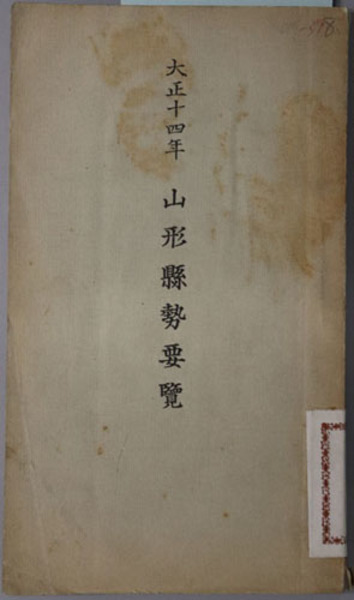 大正十四年 山形縣勢要覽